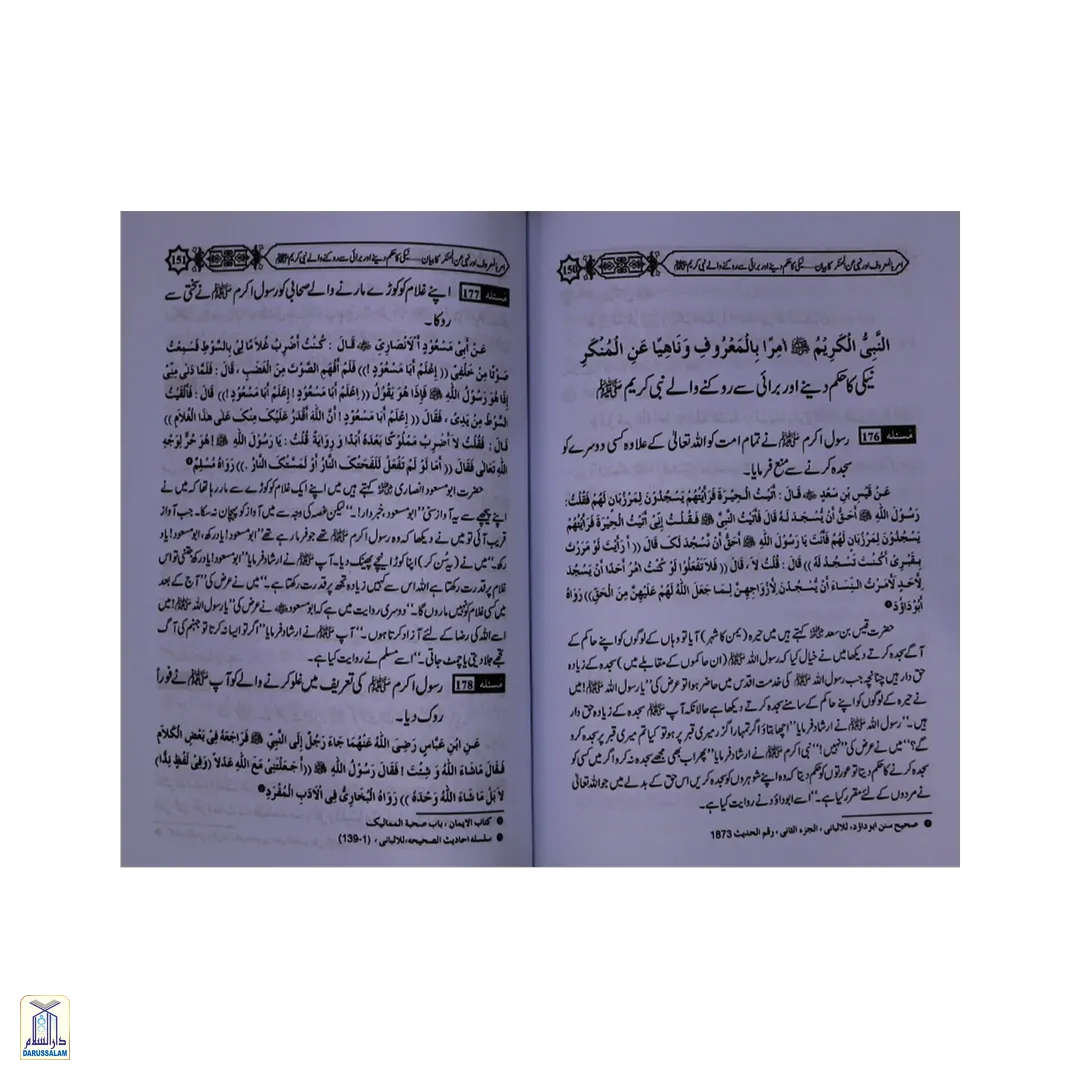 امر بالمعروف اور نہی عن المنکر کا بیان — نیکی کا حکم دینے اور برائی سے روکنے والے نبی کریم ﷺ
150
النَّبِيُّ الْكَرِيْمُ ﷺ اٰمِرًا بِالْمَعْرُوْفِ وَنَاهِيًا عَنِ الْمُنْكَرِ
نیکی کا حکم دینے اور برائی سے روکنے والے نبی کریم ﷺ
مسئلہ 176 رسول اکرم ﷺ نے تمام امت کو اللہ تعالیٰ کے علاوہ کسی دوسرے کو
سجدہ کرنے سے منع فرمایا۔
عَنْ قَيْسِ بْنِ سَعْدٍ ﷺ قَالَ : أَتَيْتُ الْحِيْرَةَ فَرَأَيْتُهُمْ يَسْجُدُوْنَ لِمَرْزُبَانٍ لَهُمْ فَقُلْتُ:
رَسُوْلُ اللّٰهِ ﷺ أَحَقُّ أَنْ يُسْجَدَ لَهُ قَالَ فَأَتَيْتُ النَّبِيَّ ﷺ فَقُلْتُ إِنِّيْ أَتَيْتُ الْحِيْرَةَ فَرَأَيْتُهُمْ
يَسْجُدُوْنَ لِمَرْزُبَانٍ لَهُمْ فَأَنْتَ يَا رَسُوْلَ اللّٰهِ ﷺ أَحَقُّ أَنْ نَسْجُدَ لَكَ قَالَ (( أَرَأَيْتَ لَوْ مَرَرْتَ
بِقَبْرِيْ أَكُنْتَ تَسْجُدُ لَهُ )) قَالَ : قُلْتُ لَا ، قَالَ (( فَلَا تَفْعَلُوْا لَوْ كُنْتُ اٰمُرُ أَحَدًا أَنْ يَسْجُدَ
لِأَحَدٍ لَأَمَرْتُ النِّسَاءَ أَنْ يَسْجُدْنَ لِأَزْوَاجِهِنَّ لِمَا جَعَلَ اللّٰهُ لَهُمْ عَلَيْهِنَّ مِنَ الْحَقِّ)) رَوَاهُ
أَبُوْدَاوُدَ
حضرت قیس بن سعد کہتے ہیں میں حیرہ (یمن کا شہر) آیا تو وہاں کے لوگوں کو اپنے حاکم کے
آگے سجدہ کرتے دیکھا میں نے خیال کیا کہ رسول اللہ ﷺ (ان حاکموں کے مقابلے میں) سجدہ کے زیادہ
حق دار ہیں چنانچہ جب رسول اللہ ﷺ کی خدمت اقدس میں حاضر ہوا تو عرض کی ”یا رسول اللہ ﷺ! میں
نے حیرہ کے لوگوں کو اپنے حاکم کے سامنے سجدہ کرتے دیکھا ہے حالانکہ آپ ﷺ سجدہ کے زیادہ حق دار
ہیں۔“ رسول اللہ ﷺ نے ارشاد فرمایا ”اچھا بتاؤ اگر تمہارا گزر میری قبر پر ہو تو کیا تم میری قبر پر سجدہ کرو
گے؟“ میں نے عرض کی ”نہیں!“ نبی اکرم ﷺ نے ارشاد فرمایا ”پھر اب بھی مجھے سجدہ نہ کرو اگر میں کسی کو
سجدہ کرنے کا حکم دیتا تو عورتوں کو حکم دیتا کہ وہ اپنے شوہروں کو سجدہ کریں اس حق کے بدلے میں جو اللہ تعالیٰ
نے مردوں کے لئے مقرر کیا ہے۔“ اسے ابوداؤد نے روایت کیا ہے۔
صحیح سنن ابوداؤد، للالبانی ، الجزء الثانی ، رقم الحدیث 1873
امر بالمعروف اور نہی عن المنکر کا بیان — نیکی کا حکم دینے اور برائی سے روکنے والے نبی کریم ﷺ
151
مسئلہ 177 اپنے غلام کو کوڑے مارنے والے صحابی کو رسول اکرم ﷺ نے سختی سے
روکا۔
عَنْ أَبِيْ مَسْعُوْدٍ الْأَنْصَارِيِّ قَالَ : كُنْتُ أَضْرِبُ غُلَامًا لِيْ بِالسَّوْطِ فَسَمِعْتُ
صَوْتًا مِنْ خَلْفِيْ (( إِعْلَمْ أَبَا مَسْعُوْدٍ !)) فَلَمْ أَفْهَمِ الصَّوْتَ مِنَ الْغَضَبِ ، قَالَ : فَلَمَّا دَنٰى مِنِّيْ
إِذَا هُوَ رَسُوْلُ اللّٰهِ ﷺ فَإِذَا هُوَ يَقُوْلُ (( إِعْلَمْ أَبَا مَسْعُوْدٍ ! إِعْلَمْ أَبَا مَسْعُوْدٍ !)) قَالَ : فَأَلْقَيْتُ
السَّوْطَ مِنْ يَدِيْ ، فَقَالَ (( إِعْلَمْ أَبَا مَسْعُوْدٍ ! أَنَّ اللّٰهَ أَقْدَرُ عَلَيْكَ مِنْكَ عَلٰى هٰذَا الْغُلَامِ ))
قَالَ : فَقُلْتُ لَا أَضْرِبُ مَمْلُوْكًا بَعْدَهُ أَبَدًا وَ رِوَايَةٌ قُلْتُ : يَا رَسُوْلَ اللّٰهِ ﷺ ! هُوَ حُرٌّ لِوَجْهِ
اللّٰهِ تَعَالٰى فَقَالَ (( أَمَا لَوْ لَمْ تَفْعَلْ لَلَفَحَتْكَ النَّارُ أَوْ لَمَسَّتْكَ النَّارُ .)) رَوَاهُ مُسْلِمٌ
حضرت ابومسعود انصاری کہتے ہیں میں اپنے ایک غلام کو کوڑے سے مار رہا تھا کہ میں نے
اپنے پیچھے سے یہ آواز سنی ”ابومسعود خبردار!۔“ لیکن غصہ کی وجہ سے میں آواز کو پہچان نہ سکا۔ جب آواز
قریب آئی تو میں نے دیکھا کہ وہ رسول اکرم ﷺ تھے جو فرما رہے تھے ”ابومسعود! یاد رکھ، ابومسعود! یاد
رکھ۔“ میں نے (یہ سن کر) اپنا کوڑا نیچے پھینک دیا۔ آپ ﷺ نے ارشاد فرمایا ”ابومسعود! یاد رکھ جتنی تو اس
غلام پر قدرت رکھتا ہے اللہ اس سے کہیں زیادہ تجھ پر قدرت رکھتا ہے۔“ میں نے عرض کی ”آج کے بعد
میں کسی غلام کو نہیں ماروں گا۔“ دوسری روایت میں ہے کہ ابومسعود نے عرض کی ”یا رسول اللہ ﷺ! میں
اسے اللہ کی رضا کے لئے آزاد کرتا ہوں۔“ آپ ﷺ نے ارشاد فرمایا ”اگر تو ایسا نہ کرتا تو جہنم کی آگ
تجھے جلا دیتی یا چمٹ جاتی۔“ اسے مسلم نے روایت کیا ہے۔
مسئلہ 178 رسول اکرم ﷺ کی تعریف میں غلو کرنے والے کو آپ ﷺ نے فوراً
روک دیا۔
عَنِ ابْنِ عَبَّاسٍ رَضِيَ اللّٰهُ عَنْهُمَا جَاءَ رَجُلٌ إِلَى النَّبِيِّ ﷺ فَرَاجَعَهُ فِيْ بَعْضِ الْكَلَامِ
فَقَالَ مَا شَاءَ اللّٰهُ وَ شِئْتَ ! فَقَالَ رَسُوْلُ اللّٰهِ ﷺ (( أَجَعَلْتَنِيْ مَعَ اللّٰهِ عَدْلًا (وَفِيْ لَفْظٍ نِدًّا)
لَا بَلْ مَا شَاءَ اللّٰهُ وَحْدَهُ )) رَوَاهُ الْبُخَارِيُّ فِي الْأَدَبِ الْمُفْرَدِ
کتاب الایمان ، باب صحبة الممالیک
سلسلہ احادیث الصحیحہ، للالبانی ، (1-139)
دارالسلام
DARUSSALAM